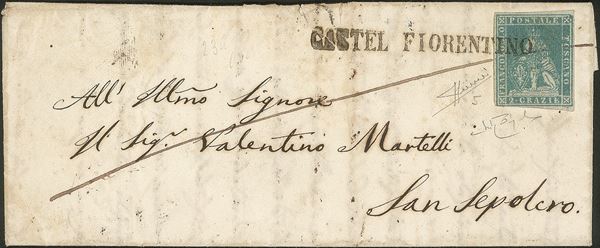 CASTEL FIORENTINO
FRANCOBOLLO
POSTALE
TOSCANO
2 CRAZIE
5
All' Illmo Signore
Il Sigr. Valentino Martelli
San Sepolcro.